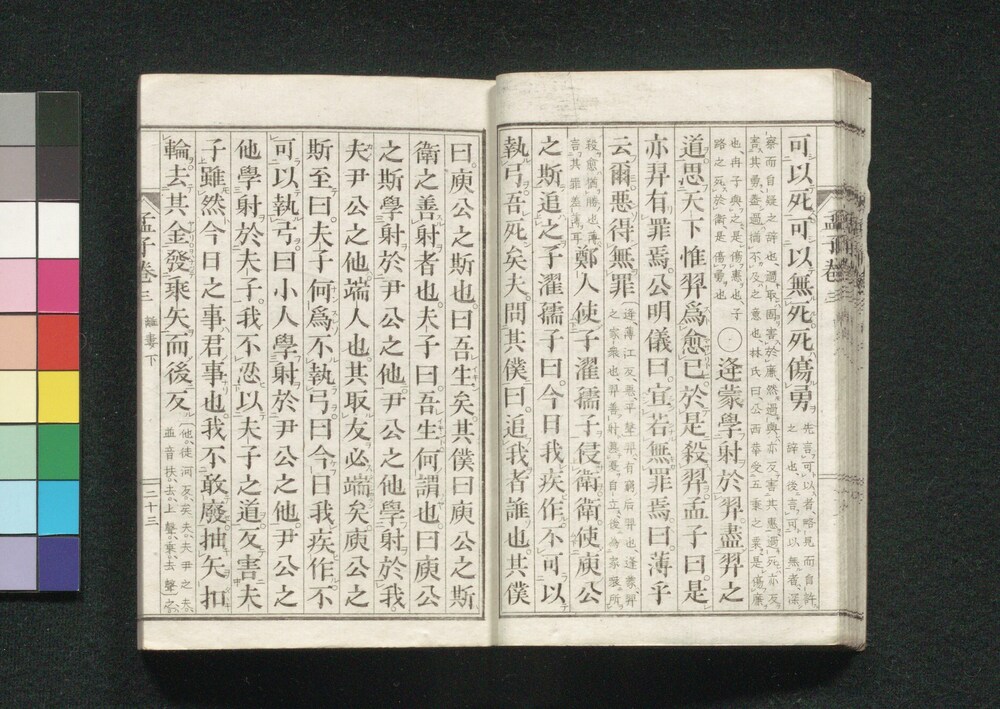 可以死可以無死死傷勇 先言可以者略見而自許之辭也後言可以無者深
察而自疑之辭也過取固害於廉然過與亦反害其惠過死亦反
害其勇蓋過猶不及之意也林氏曰公西華受五秉之粟是傷廉
也冉子與之是傷惠也子
路之死於衛是傷勇也
○逄蒙學射於羿盡羿之
道思天下惟羿爲愈已於是殺羿孟子曰是
亦羿有罪焉公明儀曰宜若無罪焉曰薄乎
云爾惡得無罪 逄薄江反惡平聲羿有窮后羿也逄蒙羿
之家衆也羿善射簒夏自立後爲家衆所
殺愈猶勝也薄
言其罪差薄耳
鄭人使子濯孺子侵衛衛使庾公
之斯追之子濯孺子曰今日我疾作不可以
執弓吾死矣夫問其僕曰追我者誰也其僕
曰庾公之斯也曰吾生矣其僕曰庾公之斯
衛之善射者也夫子曰吾生何謂也曰庾公
之斯學射於尹公之他尹公之他學射於我
夫尹公之他端人也其取友必端矣庾公之
斯至曰夫子何爲不執弓曰今日我疾作不
可以執弓曰小人學射於尹公之他尹公之
他學射於夫子我不忍以夫子之道反害夫
子雖然今日之事君事也我不敢廢抽矢扣
輪去其金發乘矢而後反 他徒河反矣夫夫尹之夫
並音扶去上聲乘去聲之
孟子卷三 離婁下 二十三
孟子卷